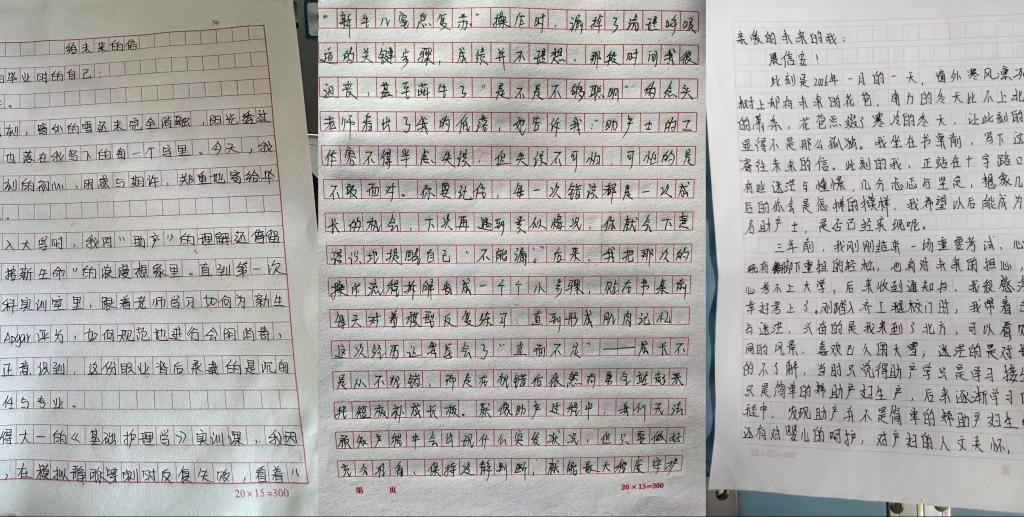 No
给未来的信
毕业时的自己：
窗外的雪还未完全消融，阳光透过
落在我写下的每一个字里。今天，我
刻的初心、困惑与期许，郑重地寄给毕
入大学时，我对"助产"的理解还停留
接新生命"的浪漫想象里。直到第一次
科实训室里，跟着老师学习如何为新生
Apgar评分，如何规范地进行会阴消毒，
正意识到，这份职业背后承载的是沉甸
任与专业。
得大一的《基础护理学》实训课，我因
，在模拟静脉穿刺时反复失败，看着"
20×15=300
"新生儿窒息复苏"操作时，漏掉了清理呼吸
道的关键步骤，成绩并不理想。那段时间我很
沮丧，甚至萌生了"是不是不够聪明"的念头
老师看出了我的低落，也告诉我："助产士的工
作容不得半点失误，但失误不可怕，可怕的是
不敢面对。你要记住，每一次错误都是一次成
长的机会，下次再遇到类似情况，你就会下意
识地提醒自己'不能漏'。"后来，我把那次的
操作流程拆解成一个个小步骤，贴在书桌前
每天对着模型反复练习，直到形成肌肉记忆。
这次经历让我学会了"直面不足"——成长不
是从不犯错，而是在犯错后依然有勇气站起来
把短板补成长板。就像助产过程中，我们无法
预知产程中会出现什么突发状况，但只要做好
充分准备、保持冷静判断，就能最大程度守护
第 页
20×15=300
亲爱的未来的我：
展信安！
此刻是2026年一月的一天，窗外寒风凛
树上却有未来的花苞，南方的冬天比不上北
的萧条，花苞点缀了寒冷的冬天，让此刻的
显得不是那么孤独。我坐在书桌前，写下这
寄往未来的信。此刻的我，正站在十字路口
有些迷茫与憧憬，几分忐忑与坚定，想象几
后的你会是怎样的模样，我希望以后能成为
名助产士，是否已经实现呢。
三年前，我刚刚结束一场重要考试，心
有卸下重担的轻松，也有对未来的担心，
心考不上大学，后来收到通知书，我很感
幸好考上了。刚踏入齐工程校门时，我带着
与迷茫，兴奋的是我来到了北方，可以看
同的风景，喜欢已久的大雪，迷茫的是对
的不了解，当时只觉得助产学只是学习接生
只是简单的帮助产妇生产，后来逐渐学习
程中，发现助产并不是简单的帮助产妇生
还有对婴儿的呵护，对产妇的人文关怀，
20×20=400